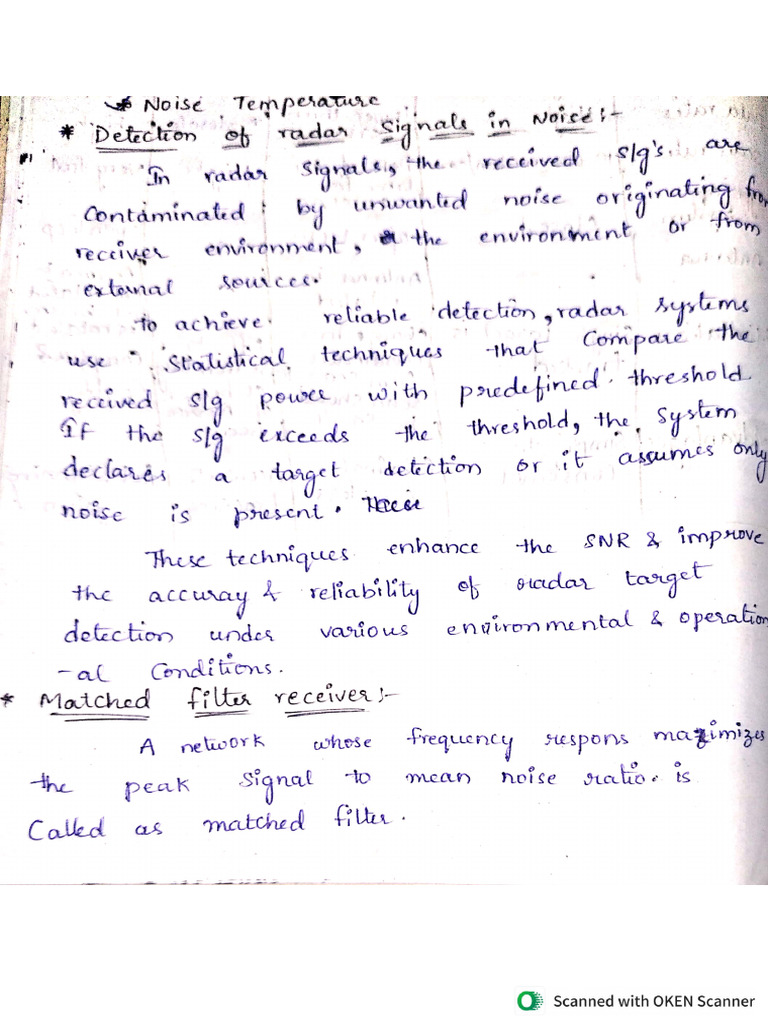 Noise Temperature
* Detection of radar signals in Noise:-
In radar signals, the received s/g's are
contaminated by unwanted noise originating from
receiver environment, the environment or from
external sources.
to achieve reliable detection, radar systems
use statistical techniques that compare the
received s/g power with predefined threshold
If the s/g exceeds the threshold, the system
declares a target detection or it assumes only
noise is present. These
These techniques enhance the SNR & improve
the accuray & reliability of radar target
detection under various environmental & operation
-al conditions.
* Matched filter receiver:-
A network whose frequency respons maximizes
the peak signal to mean noise ratio. is
Called as matched filter.
Scanned with OKEN Scanner